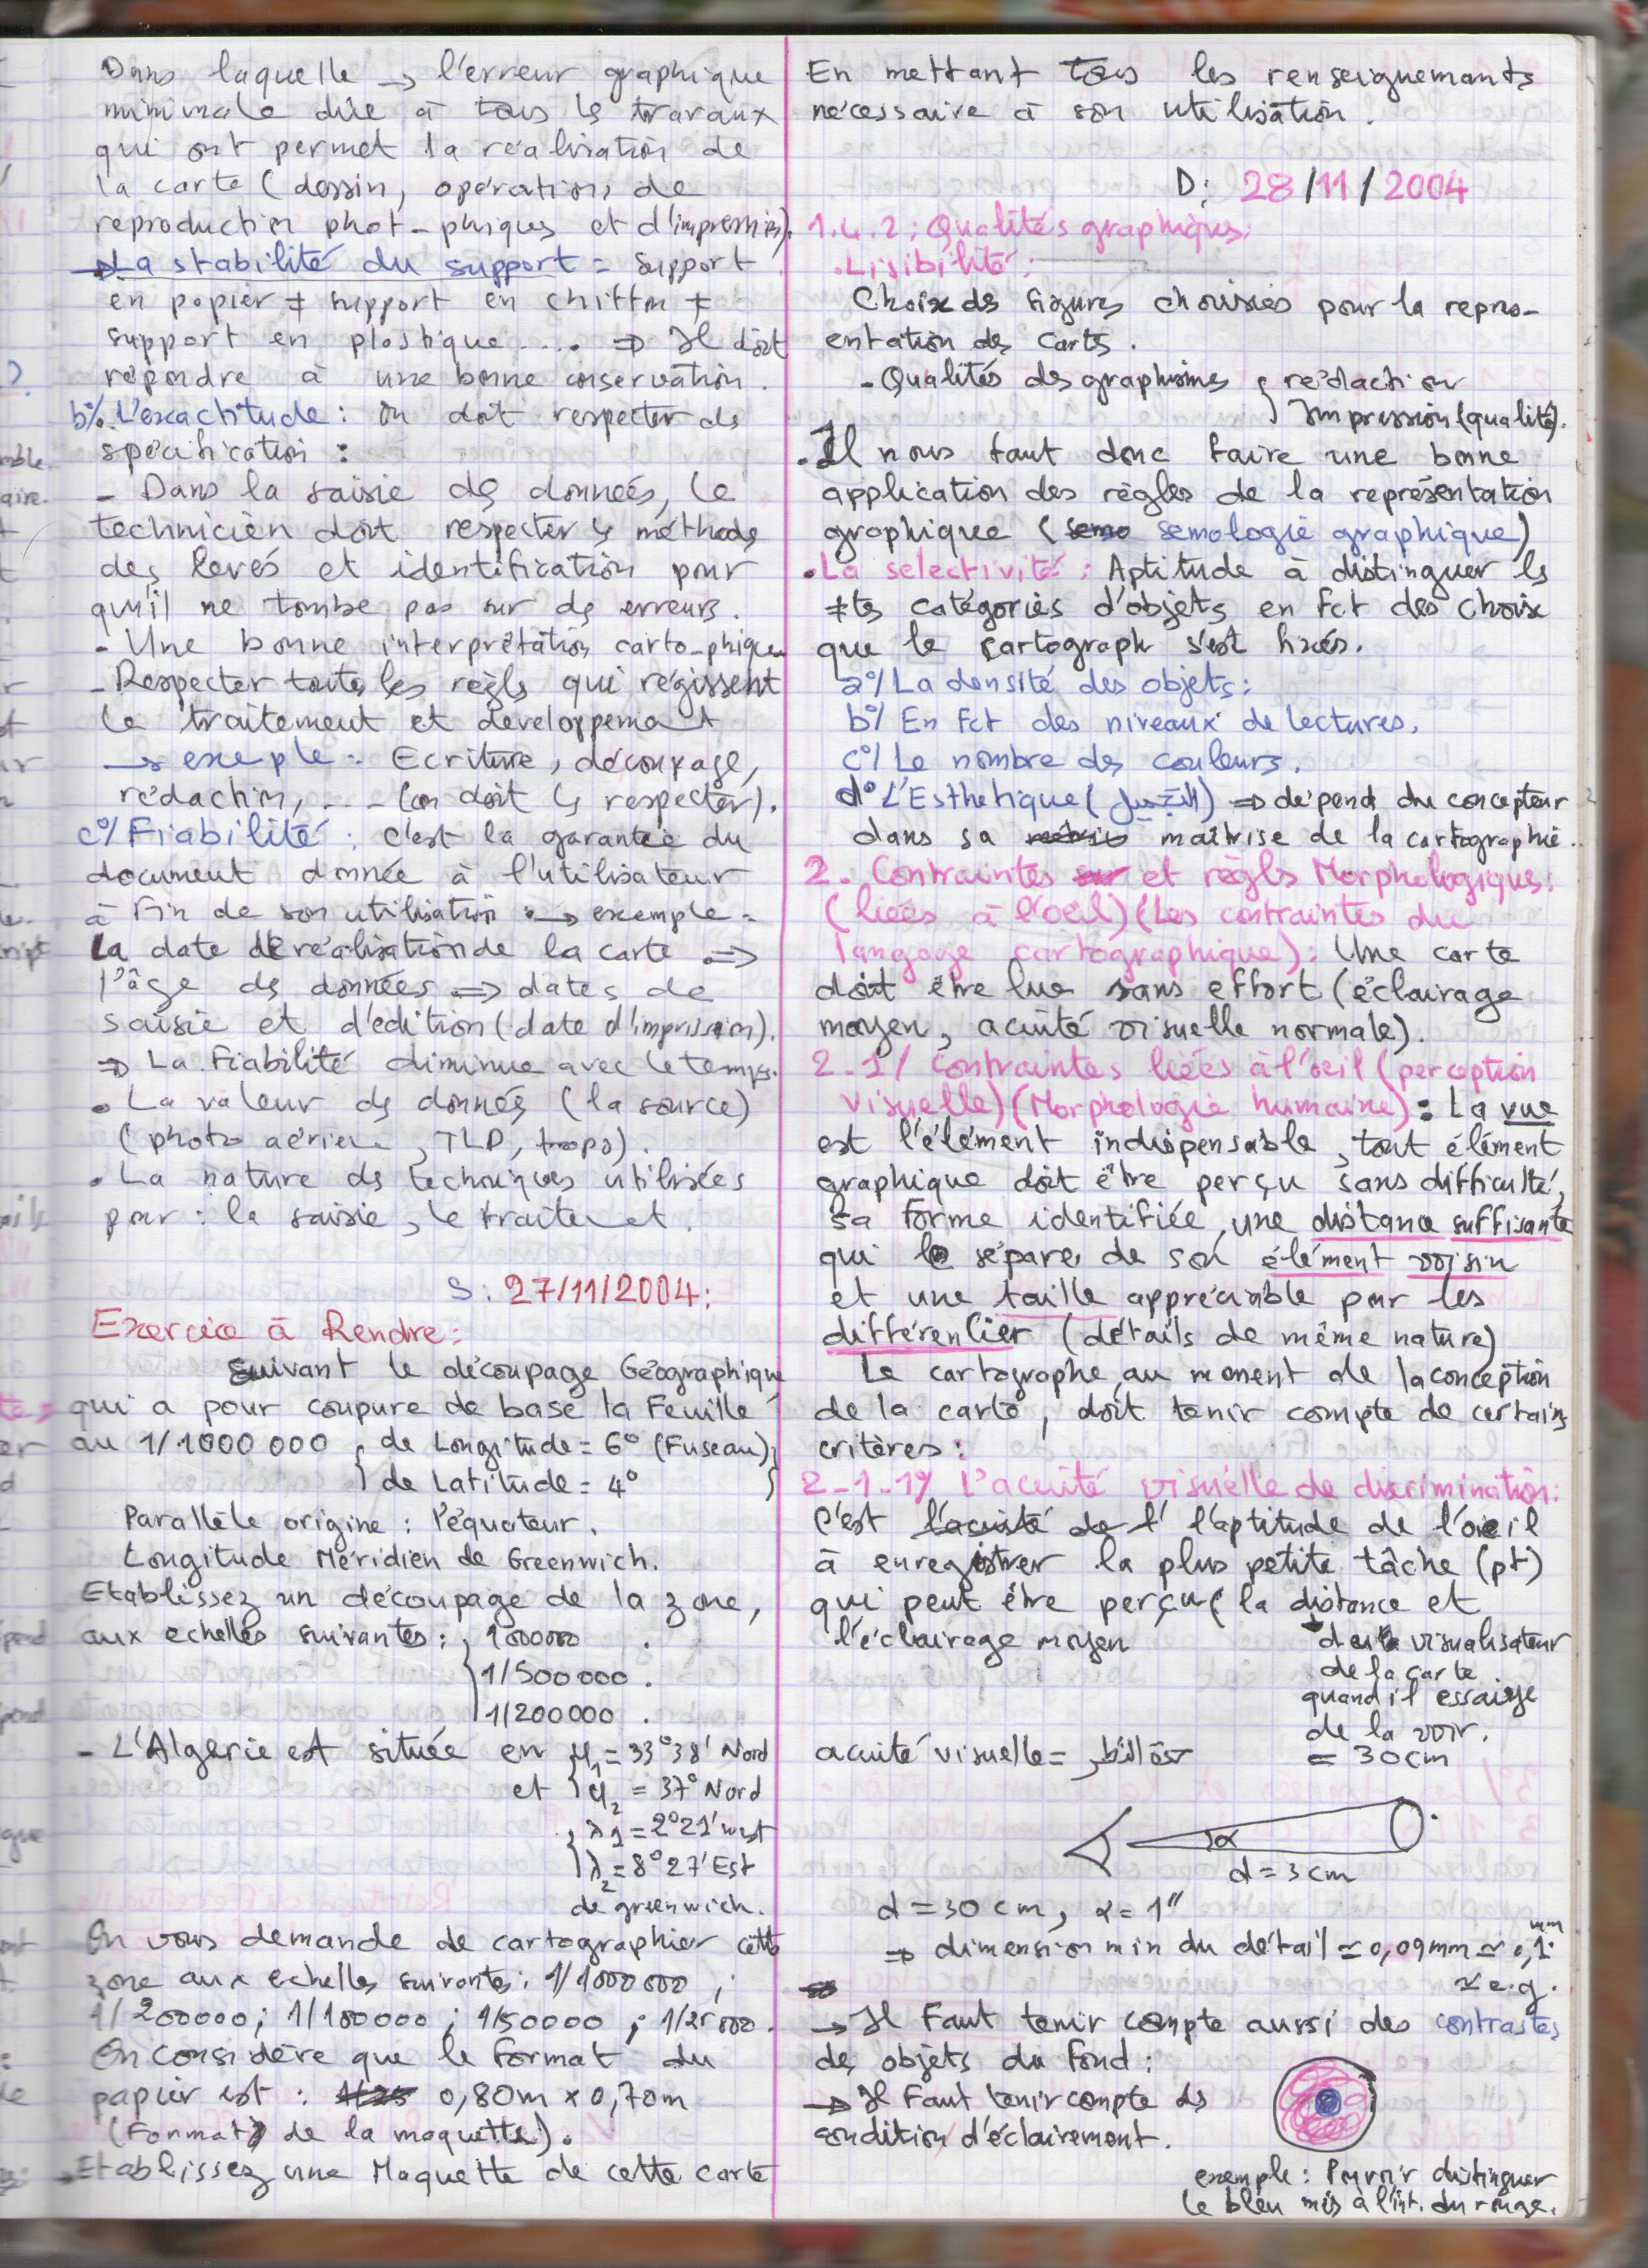 Dans laquelle → l'erreur graphique
minimale dûe à tous les travaux
qui ont permet la réalisation de
la carte (dessin, opérations de
reproduction phot-phiques et d'impression).
→ La stabilité du support = Support
en papier ≠ support en chiffon ≠
support en plastique .... ⇒ Il doit
répondre à une bonne conservation.
b°/. L'exactitude : on doit respecter des
spécification :
- Dans la saisie des données, le
technicien doit respecter les méthodes
des levés et identification pour
qu'il ne tombe pas sur des erreurs.
- Une bonne interprétation carto-phique
- Respecter toutes les règles qui régissent
le traitement et developpement
→ exemple : Ecriture, découpage,
rédaction, ... (on doit les respecter).
c°/ Fiabilité : c'est la garantie du
document donnée à l'utilisateur
à fin de son utilisation → exemple =
La date de réalisation de la carte ⇒
l'âge des données ⇒ dates de
saisie et d'édition (date d'impression).
⇒ La Fiabilité diminue avec le temps.
• La valeur des données (la source)
(photo aérienne, TLD, topo).
• La nature des techniques utilisées
pour : la saisie, le traitement.
S : 27/11/2004 :
Exercice à Rendre :
Suivant le découpage Géographique
qui a pour coupure de base la Feuille
au 1/1000 000 { de Longitude = 6° (Fuseau)
{ de Latitude = 4° }
Parallèle origine : l'équateur.
Longitude Méridien de Greenwich.
Etablissez un découpage de la zone,
aux echelles suivantes : { 1000000 .
1/500 000 .
1/200000 .
- L'Algerie est située en { φ1 = 33°38' Nord
et { φ2 = 37° Nord
{ λ1 = 2°21' west
{ λ2 = 8°27' Est
de greenwich.
On vous demande de cartographier cette
zone aux echelles suivantes : 1/1000 000 ;
1/200000 ; 1/100000 ; 1/50000 ; 1/25 000.
On considère que le format du
papier est : 0,80m x 0,70m
(Format de la maquette).
→ Etablissez une Maquette de cette carte
En mettant tous les renseignemants
nécessaire à son utilisation.
D : 28/11/2004
1.4.2 : Qualités graphiques :
• Lisibilité :
Choix des figures choisies pour la repré-
entation des cartes.
- Qualités des graphismes { rédaction
Impression (qualité).
• Il nous faut donc faire une bonne
application des règles de la représentation
graphique (semo semologie graphique)
• La selectivité : Aptitude à distinguer les
≠tes catégories d'objets en fct des choix
que le cartograph s'est fixés.
a°/ La densité des objets :
b°/ En fct des niveaux de lectures.
c°/ Le nombre des couleurs.
d° L'Esthetique ( ) ⇒ dépend du concepteur
dans sa maîtrise de la cartographie.
2. Contraintes et règles Morphologiques :
(liées à l'oeil) (Les contraintes du
langage cartographique) : Une carte
doit être lue sans effort (éclairage
moyen, acuité visuelle normale).
2.1/ Contraintes liées à l'oeil (perception
visuelle) (Morphologie humaine) : La vue
est l'élément indispensable, tout élément
graphique doit être perçu sans difficulté,
sa forme identifiée, une distance suffisante
qui le sépare de son élément voisin
et une taille appréciable pour les
différencier (détails de même nature)
Le cartographe, au moment de la conception
de la carte, doit tenir compte de certains
critères :
2-1-1°/ L'acuité visuelle de discrimination :
C'est l'acuité de l' l'aptitude de l'oeil
à enregistrer la plus petite tâche (pt)
qui peut être perçue (la distance et
l'éclairage moyen
→ de la visualisateur
de la carte
quand il essaie
de la voir.
= 30 cm
acuité visuelle =
α
d = 3 cm
d = 30 cm, α = 1''
⇒ dimension min du détail ≃ 0,09mm ≃ 0,1 mm
≃ e.g.
→ Il Faut tenir compte aussi des contrastes
des objets du fond :
→ Il Faut tenir compte des
condition d'éclairement.
exemple : Pouvoir distinguer
le bleu mis à l'int. du rouge.